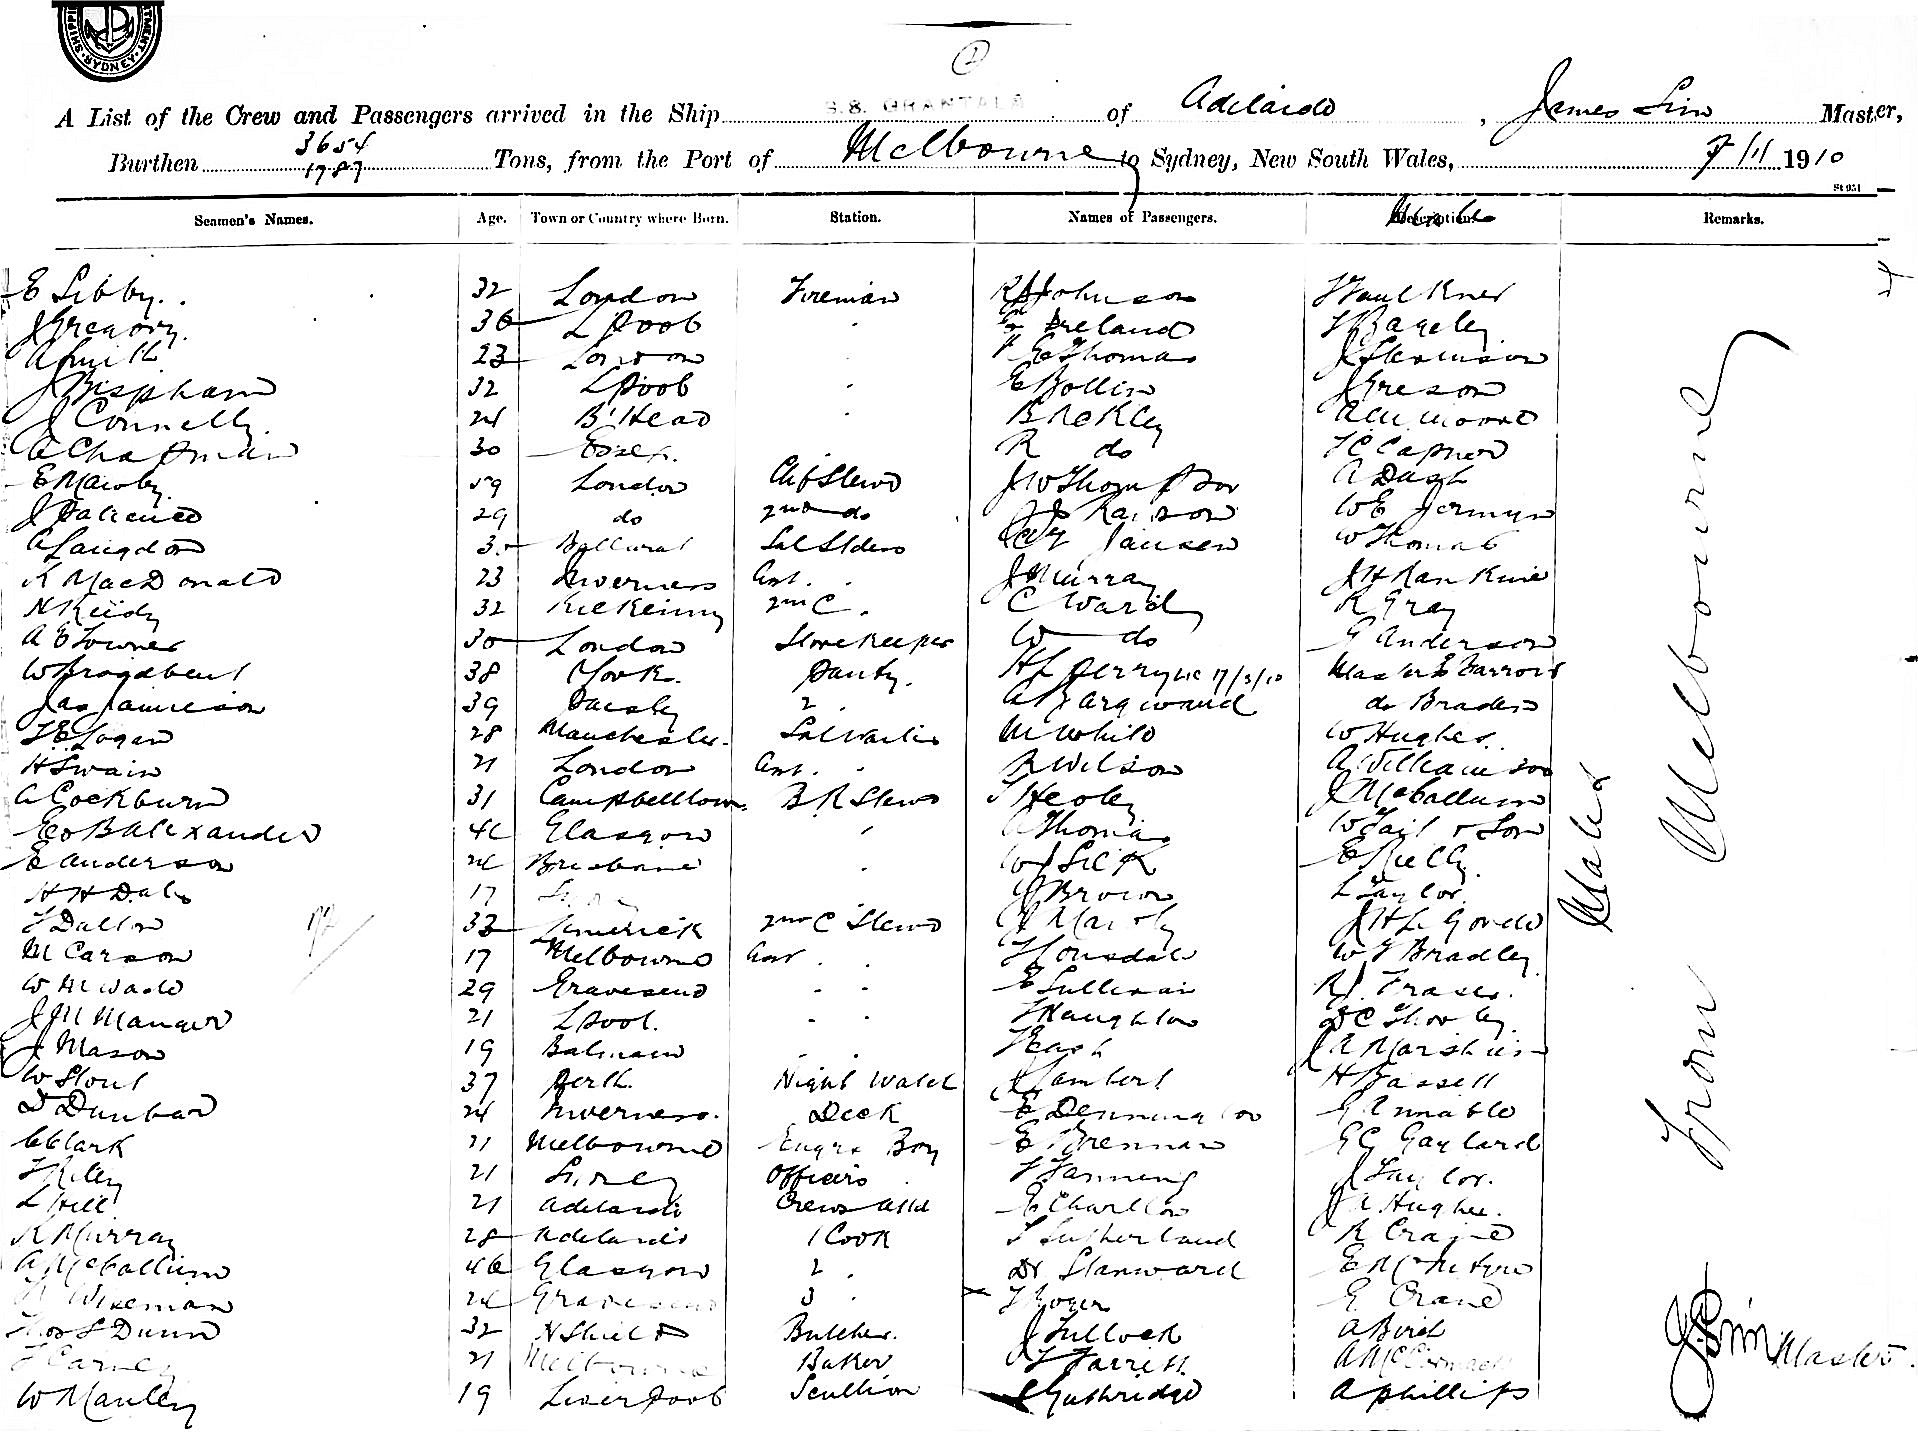 SHIPPING SYDNEY
1
A List of the Crew and Passengers arrived in the Ship S.S. GRANTALA of Adelaide, James Sim Master,
Burthen 3654 1787 Tons, from the Port of Melbourne to Sydney, New South Wales, 11 1910
St 951
Seamen's Names. Age. Town or Country where Born. Station. Names of Passengers. Description. Remarks.
E Libby 32 London Fireman Johnson Faulkner
J Gregory 36 L Pool Ireland Bageley
A Smith 23 London Thomas
J Bispham 32 L Pool E Bollin J Greson
J Connelly 24 B'Head B Eckley Moore
A Chapman 30 Essex R do Capner
E Mawby 59 London Chf Stewd J W Thompson A Dash
J 29 do 2nd do W E Jermyn
A Langdon Ballarat Jansen W Thomas
K MacDonald 23 Inverness J Murray J H Rankine
N Reidy 32 Kilkenny 2nd C C Ward R Gray
A E Towner 30 London Storekeeper W do G Anderson
W Broadbent 38 York Pantry H L Perry 17/3/10 Master Barrow
Jas Jamieson 39 Paisley 2 do Braden
Logan 28 Manchester M White W Hughes
H Swain 21 London R Wilson A Williamson
A Cockburn 31 Campbelltown B R Stewd Healey J McCallum
B Alexander Glasgow Thomas W Tait & Son
E Anderson 24 Brisbane W J Silk E Kelly
H H Dale 17 J Brown L Taylor
Dalton 33 Limerick 2nd C Stewd
M Carson 17 Melbourne Lonsdale W Bradley
W M Wade 29 Gravesend E Sullivan R J Fraser
J M Manger 21 L Pool Naughton
J Mason 19 Balmain
W Stout 37 Perth Night Watch Lambert H Bassett
D Dunbar 24 Inverness Deck E Dennington G Annable
C Clark 21 Melbourne Engrs Boy E Brennan G C Gaylard
Riley 21 Sydney Officers Fanning J Taylor
L Hill 21 Adelaide Crews Attd E Charlton Hughes
K Murray 28 Adelaide 1 Cook Sutherland R Craine
A McCallum 46 Glasgow 2 Dr Stanward E McIntyre
Wiseman 24 Gravesend 3 E Crane
Thos S Dunn 32 N Shields Butcher J Tullock A Bird
Carney 21 Melbourne Baker Jarrett A McCormack
W Manley 19 Liverpool Scullion Guthridge A Phillips
Males
From Melbourne
J Sim Master